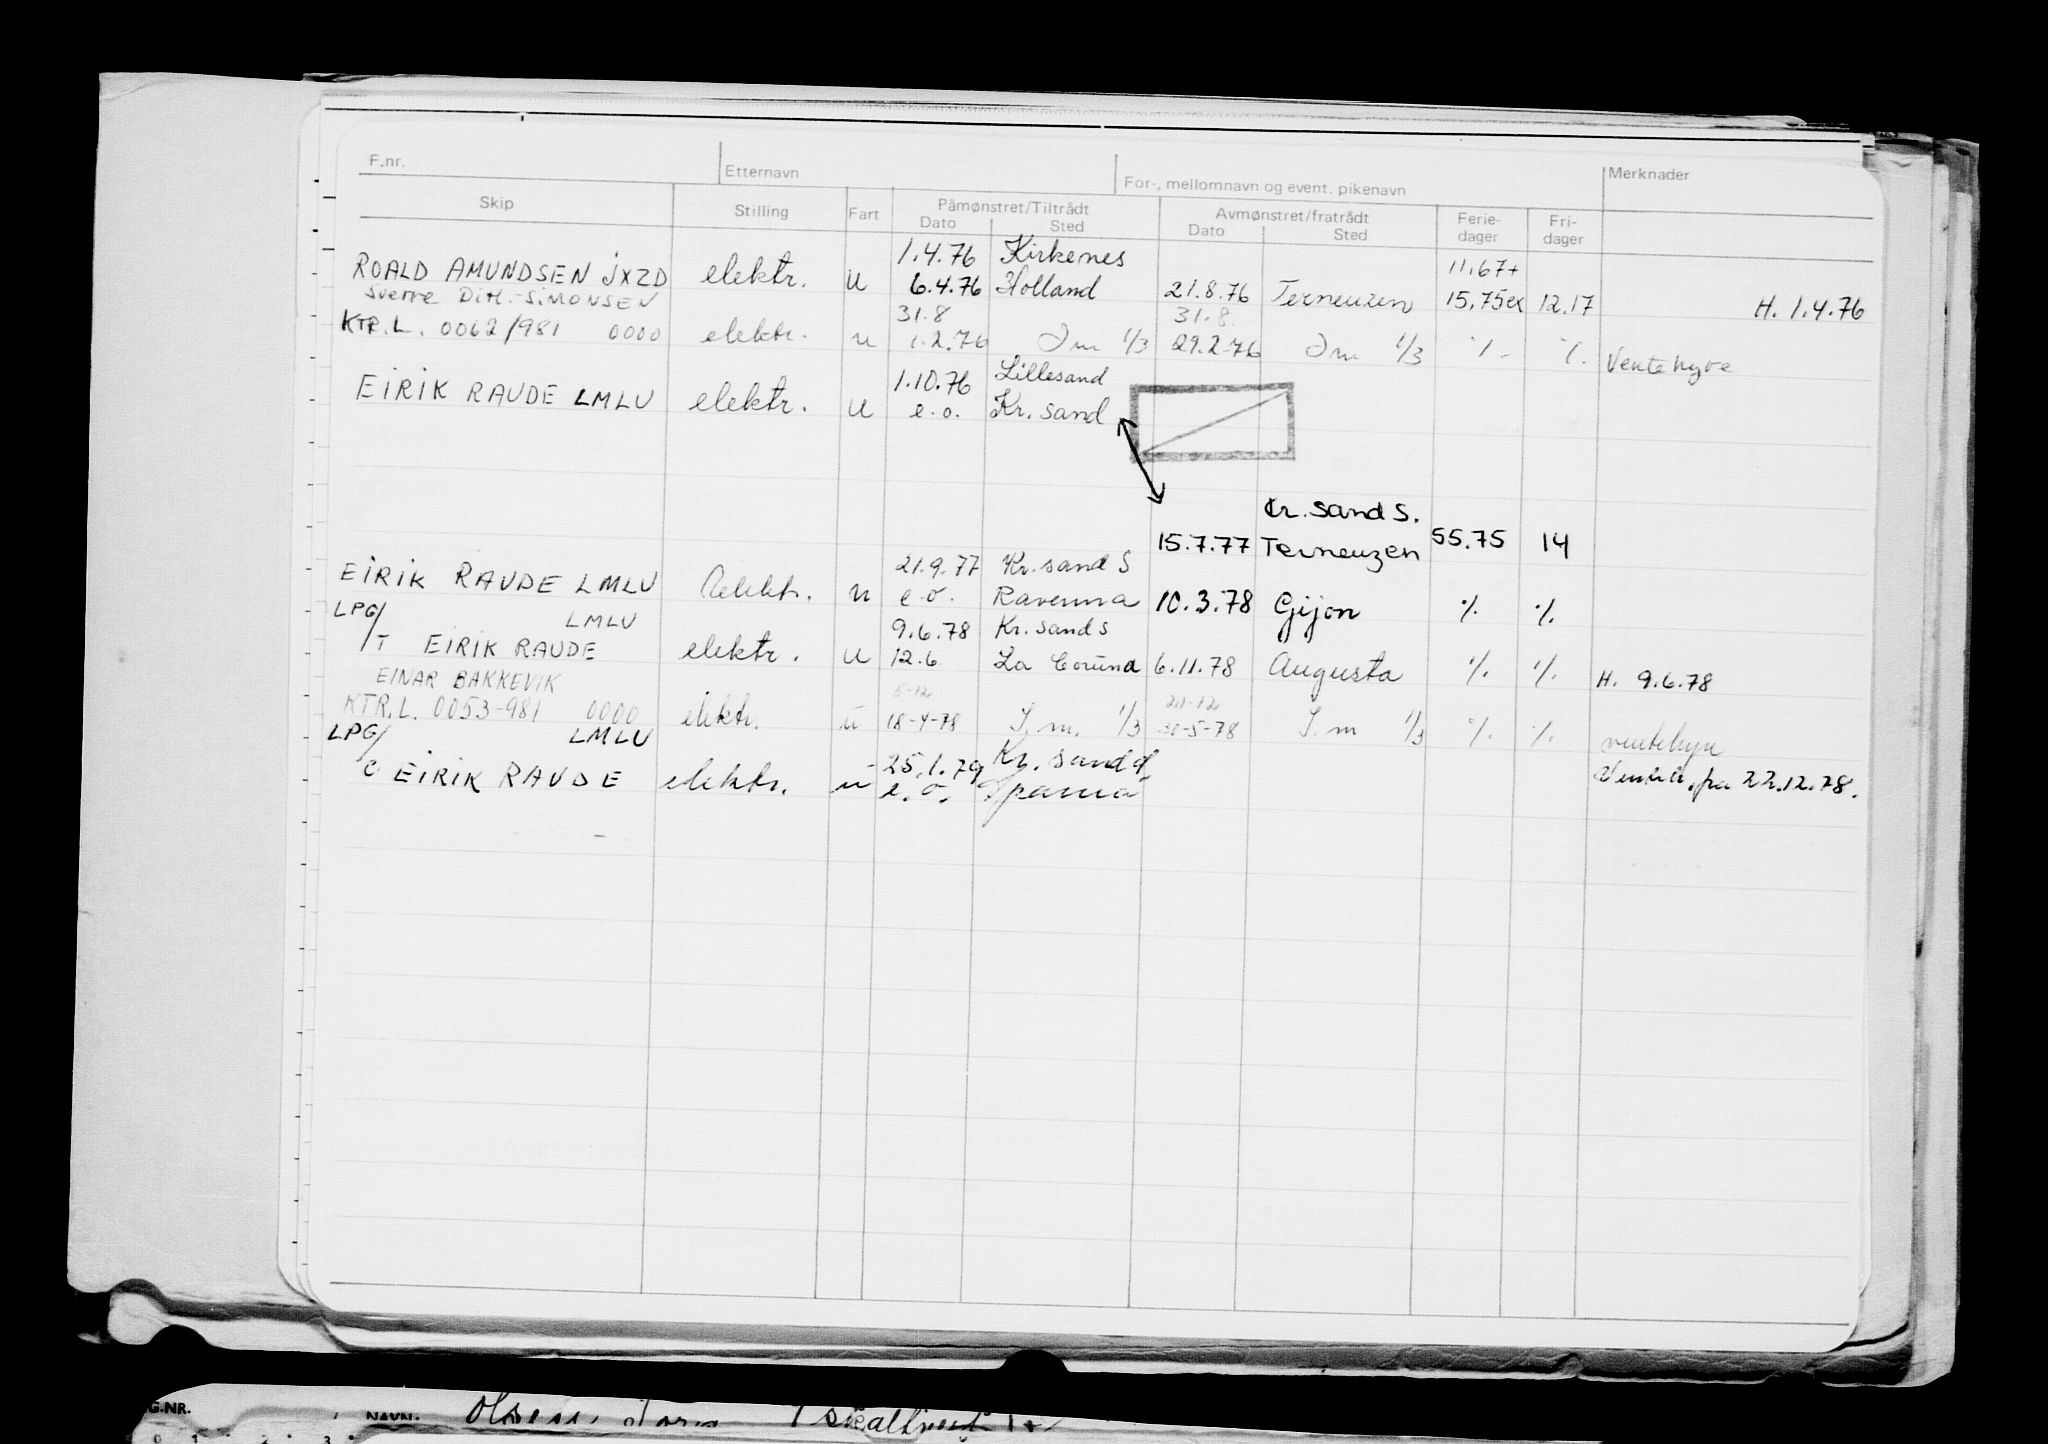 F.nr. Etternavn For-, mellomnavn og event. pikenavn Merknader
Skip Stilling Fart Påmønstret/Tiltrådt Avmønstret/fratrådt Ferie- Fri-
Dato Sted Dato Sted dager dager
1.4.76 Kirkenes 11,67+
ROALD AMUNDSEN JXZD elektr. u 6.4.76 Holland 21.8.76 Terneuzen 15,75ex 12,17 H. 1.4.76
Sverre Ditl.-SIMONSEN 31.8 31.8.
KTR.L. 0062/981 0000 elektr. u 1.2.76 Im 1/3 29.2.76 Im 1/3 ./. ./. Ventehyre
1.10.76 Lillesand
EIRIK RAUDE LMLU elektr. u e.o. Kr.sand
Kr.sand S.
15.7.77 Terneuzen 55.75 14
21.9.77 Kr.sand S
EIRIK RAUDE LMLU elektr. u e.o. Ravenna 10.3.78 Gijon ./. ./.
LPG/ LMLU 9.6.78 Kr.sand S
/T EIRIK RAUDE elektr. u 12.6 La Coruna 6.11.78 Augusta ./. ./. H. 9.6.78
EINAR BAKKEVIK 5-12 21-12
KTR.L. 0053-981 0000 elektr. u 18-4-78 I.m. 1/3 30-5-78 I.m 1/3 ./. ./. ventehyre
LPG/ LMLU 25.1.79 Kr.sand
C EIRIK RAUDE elektr. u e.o. Spania fra 22.12.78.
G.NR. NAVN: Olsen,
0 1 2 3